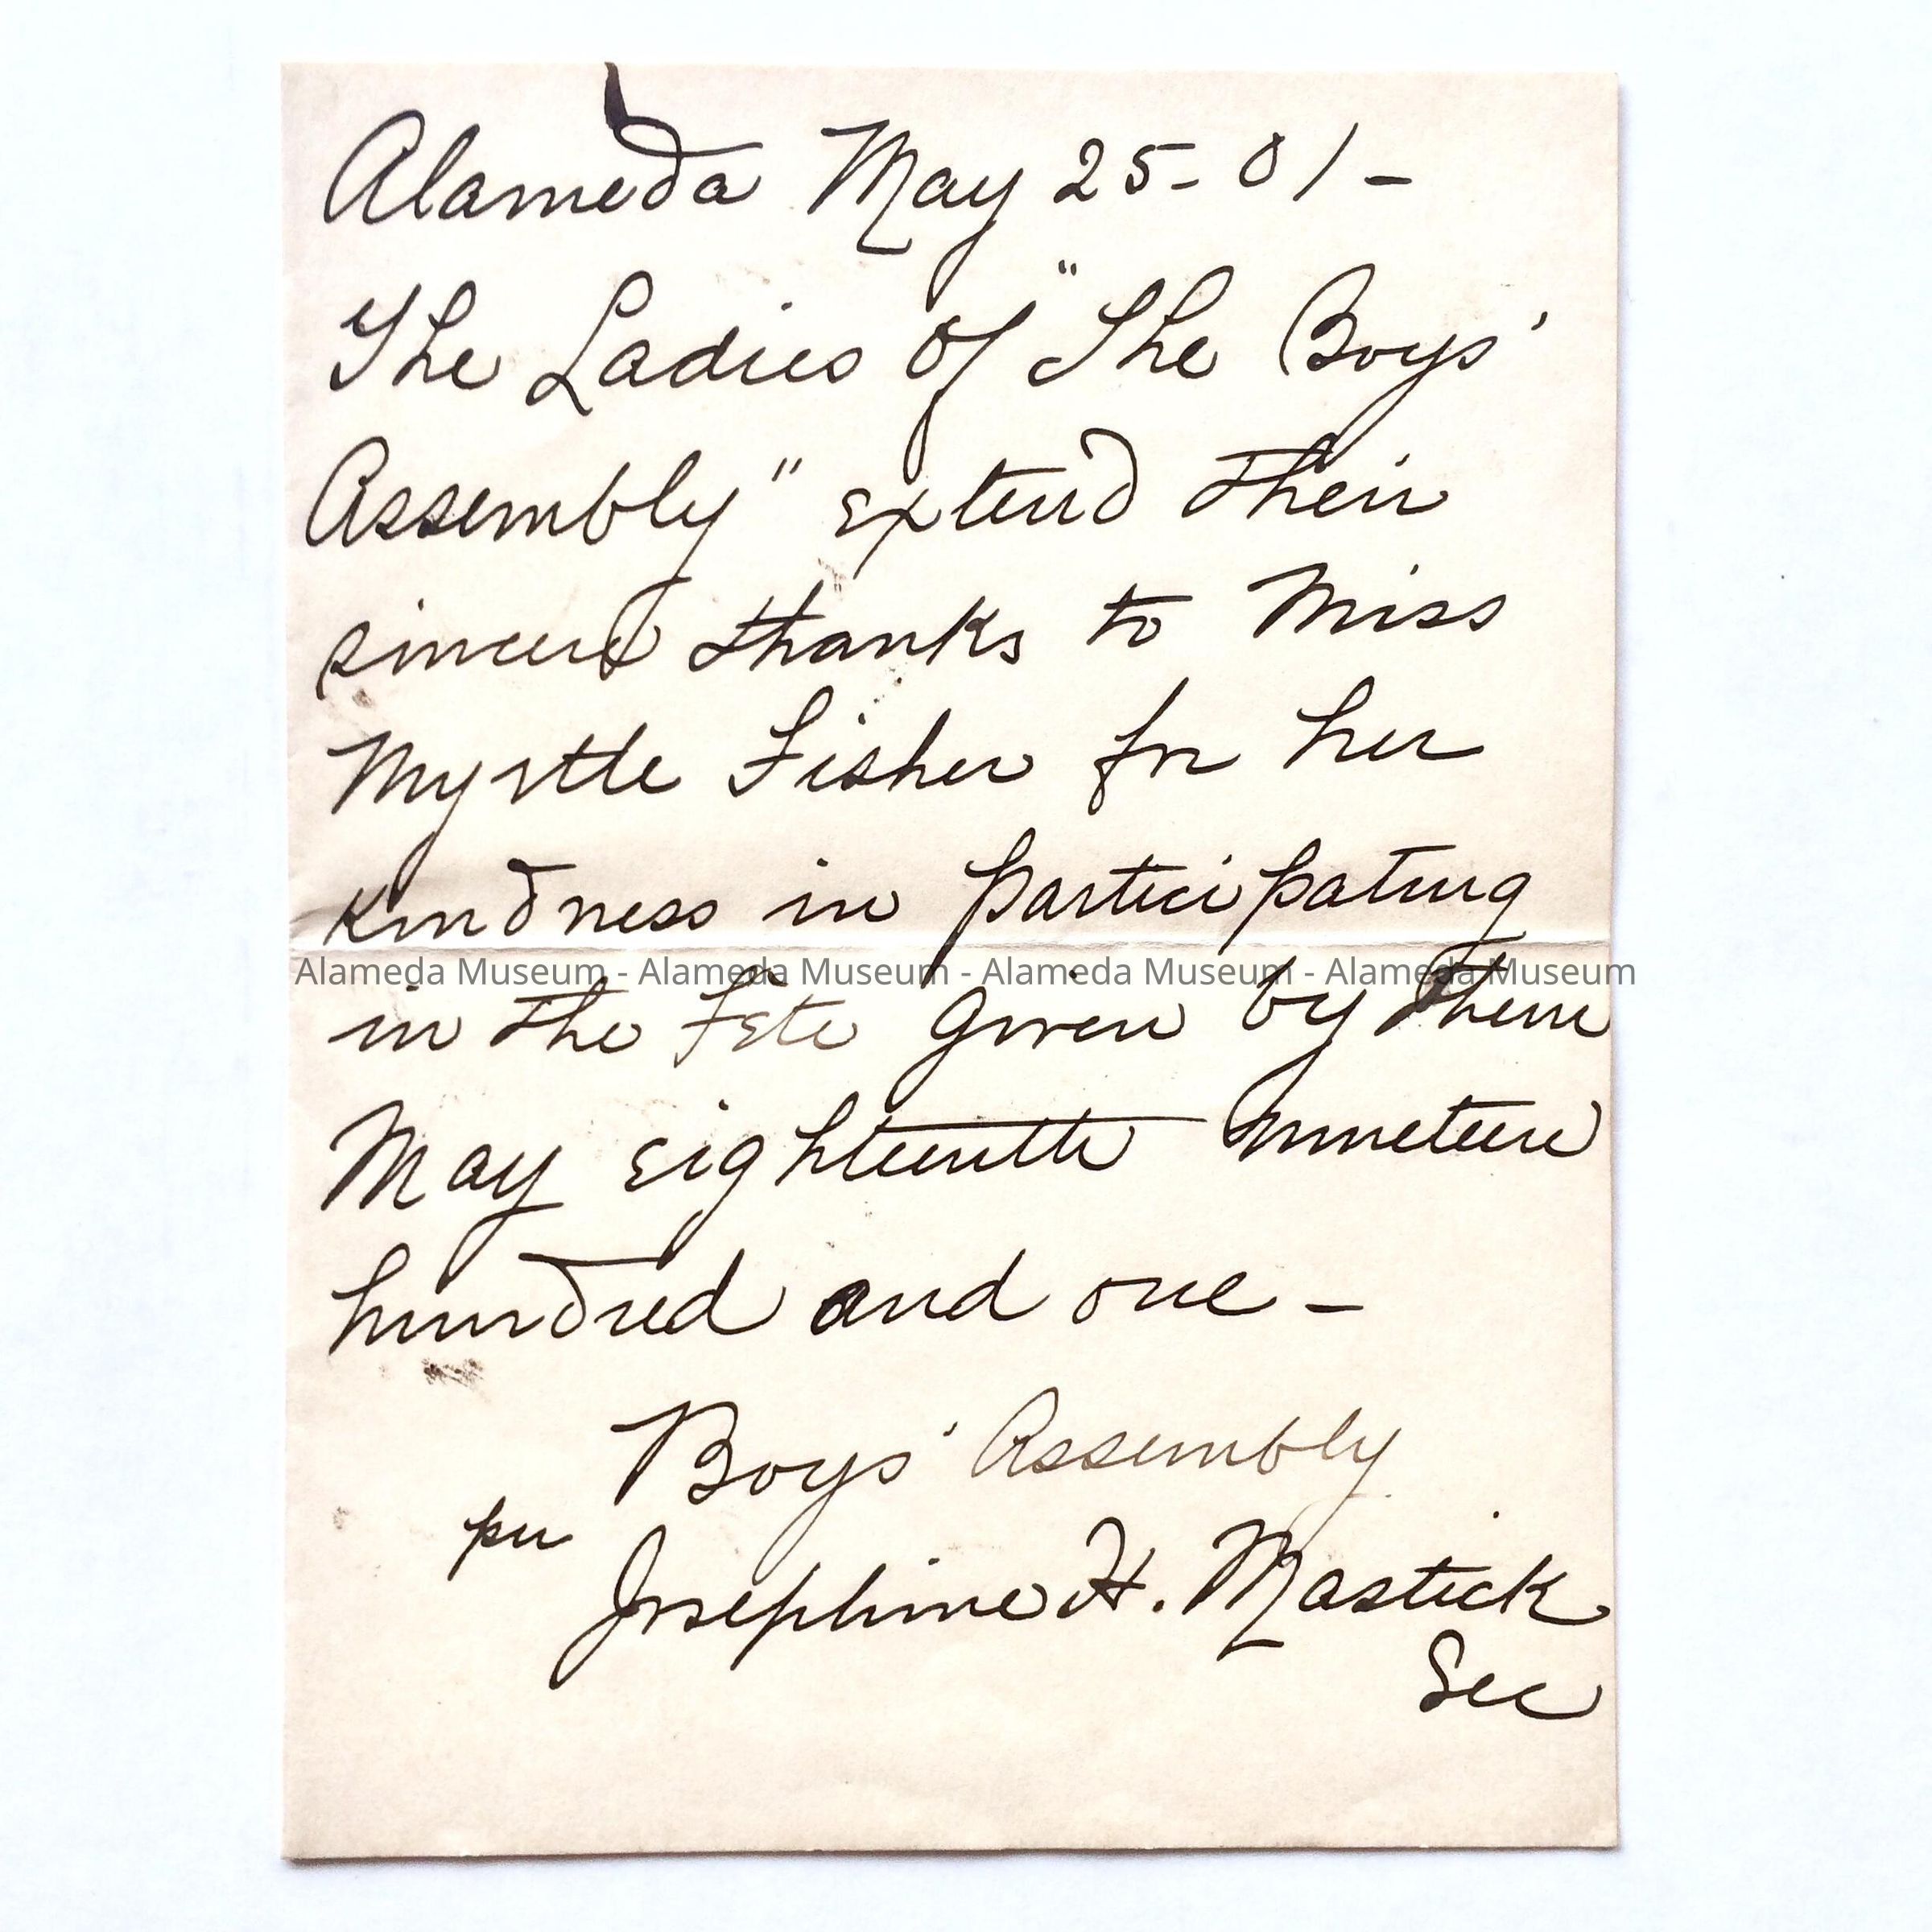 Alameda May 25-01-
The Ladies of "The Boys'
Assembly" extend their
sincere thanks to Miss
Myrtle Fisher for her
kindness in participating
Alameda Museum - Alameda Museum - Alameda Museum - Alameda Museum
in the Fête given by them
May eighteenth nineteen
hundred and one-
Boys' Assembly
per
Josephine H. Mastick
Sec